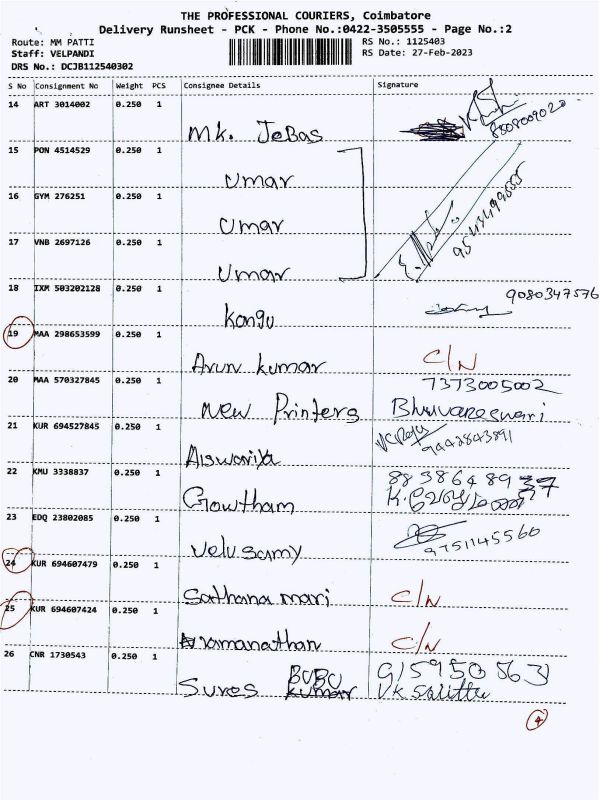 THE PROFESSIONAL COURIERS, Coimbatore
Delivery Runsheet - PCK - Phone No.:0422-3505555 - Page No.:2
Route: MM PATTI
RS No.: 1125403
Staff: VELPANDI
RS Date: 27-Feb-2023
DRS No.: DCJB112540302
S No Consignment No Weight PCS Consignee Details Signature
14 ART 3014002 0.250 1
Mk. Jebas
8508009020
15 PON 4514529 0.250 1
Umar
16 GYM 276251 0.250 1
Umar
17 VNB 2697126 0.250 1
Umar
18 IXM 503202128 0.250 1
9080347576
Kongu
19 MAA 298653599 0.250 1
Arun kumar C/N
20 MAA 570327845 0.250 1
7373005002
New Printers Bhuvaneswari
21 KUR 694527845 0.250 1
9442843891
Aiswariya
22 KMU 3338837 0.250 1
88386489 37
Gowtham
23 EDQ 23802085 0.250 1
9751145560
Velusamy
24 KUR 694607479 0.250 1
Sathana mari C/N
25 KUR 694607424 0.250 1
ramanathan C/N
26 CNR 1730543 0.250 1
BUBU 915950563
Sures kumar
4